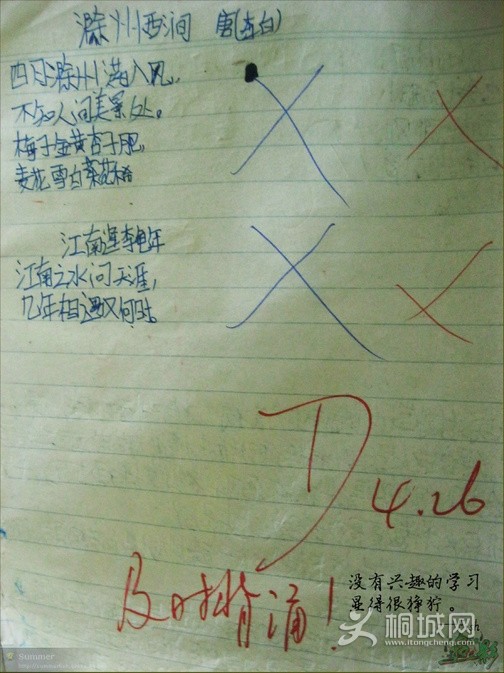 滁州西涧 唐(李白)
四月滁州满入风,
不知人间美景处。
梅子金黄杏子肥,
麦花雪白菜花稀
江南逢李龟年
江南之水问天涯,
几年相遇又何时。
D 4.26
及时背诵!
没有兴趣的学习
显得很狰狞。
桐城网
www.itongcheng.com
Summer